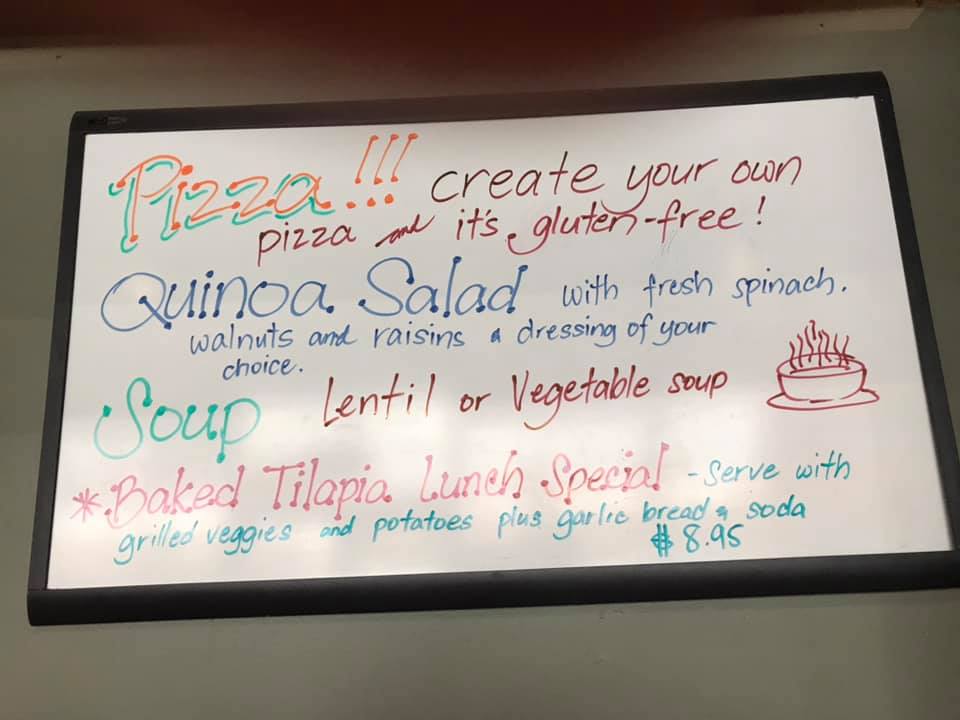 Pizza!!! create your own
pizza and it's gluten-free!
Quinoa Salad with fresh spinach.
walnuts and raisins & dressing of your
choice.
Soup Lentil or Vegetable soup
*Baked Tilapia Lunch Special - Serve with
grilled veggies and potatoes plus garlic bread & soda
$8.95